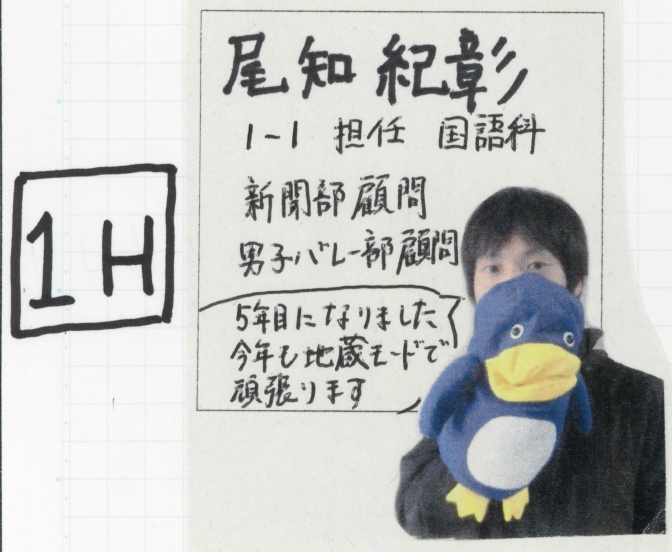 1H
尾知 紀彰
1-1 担任 国語科
新聞部顧問
男子バレー部顧問
5年目になりました
今年も地蔵モードで
頑張ります